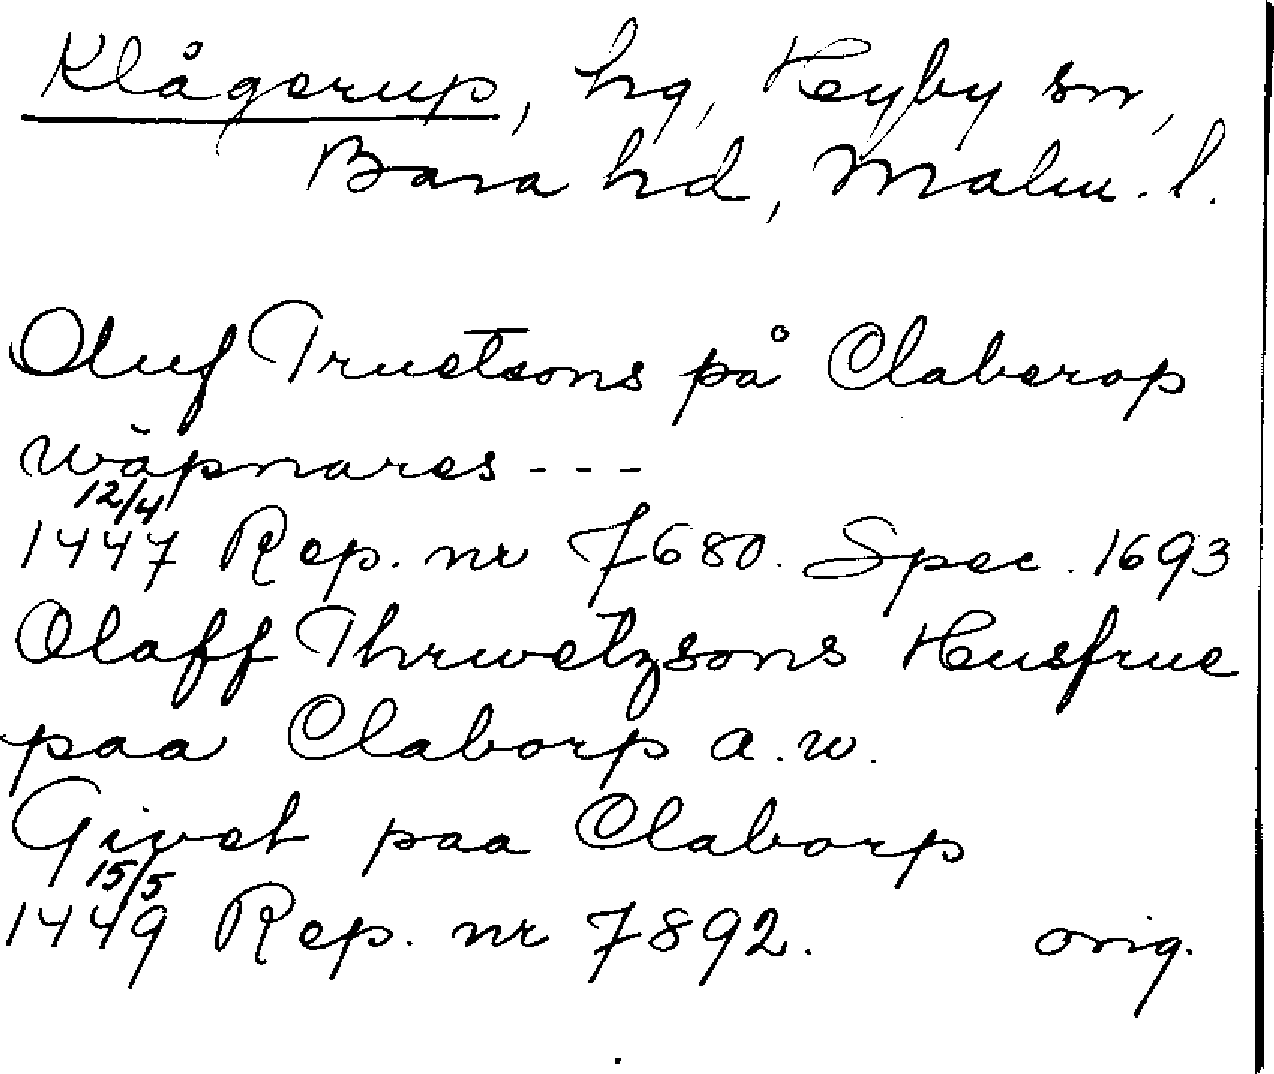 Klågerup, hg, Hyby sn,
Bara hd, Malm. l.
Oluf Truetsons på Claberop
wäpnares - - -
12/4
1447 Rep. nr 7680. Spec. 1693
Olaff Thrwetzsons Husfrue
paa Claborp a.w.
Givet paa Claborp
15/5
1449 Rep. nr 7892. orig.